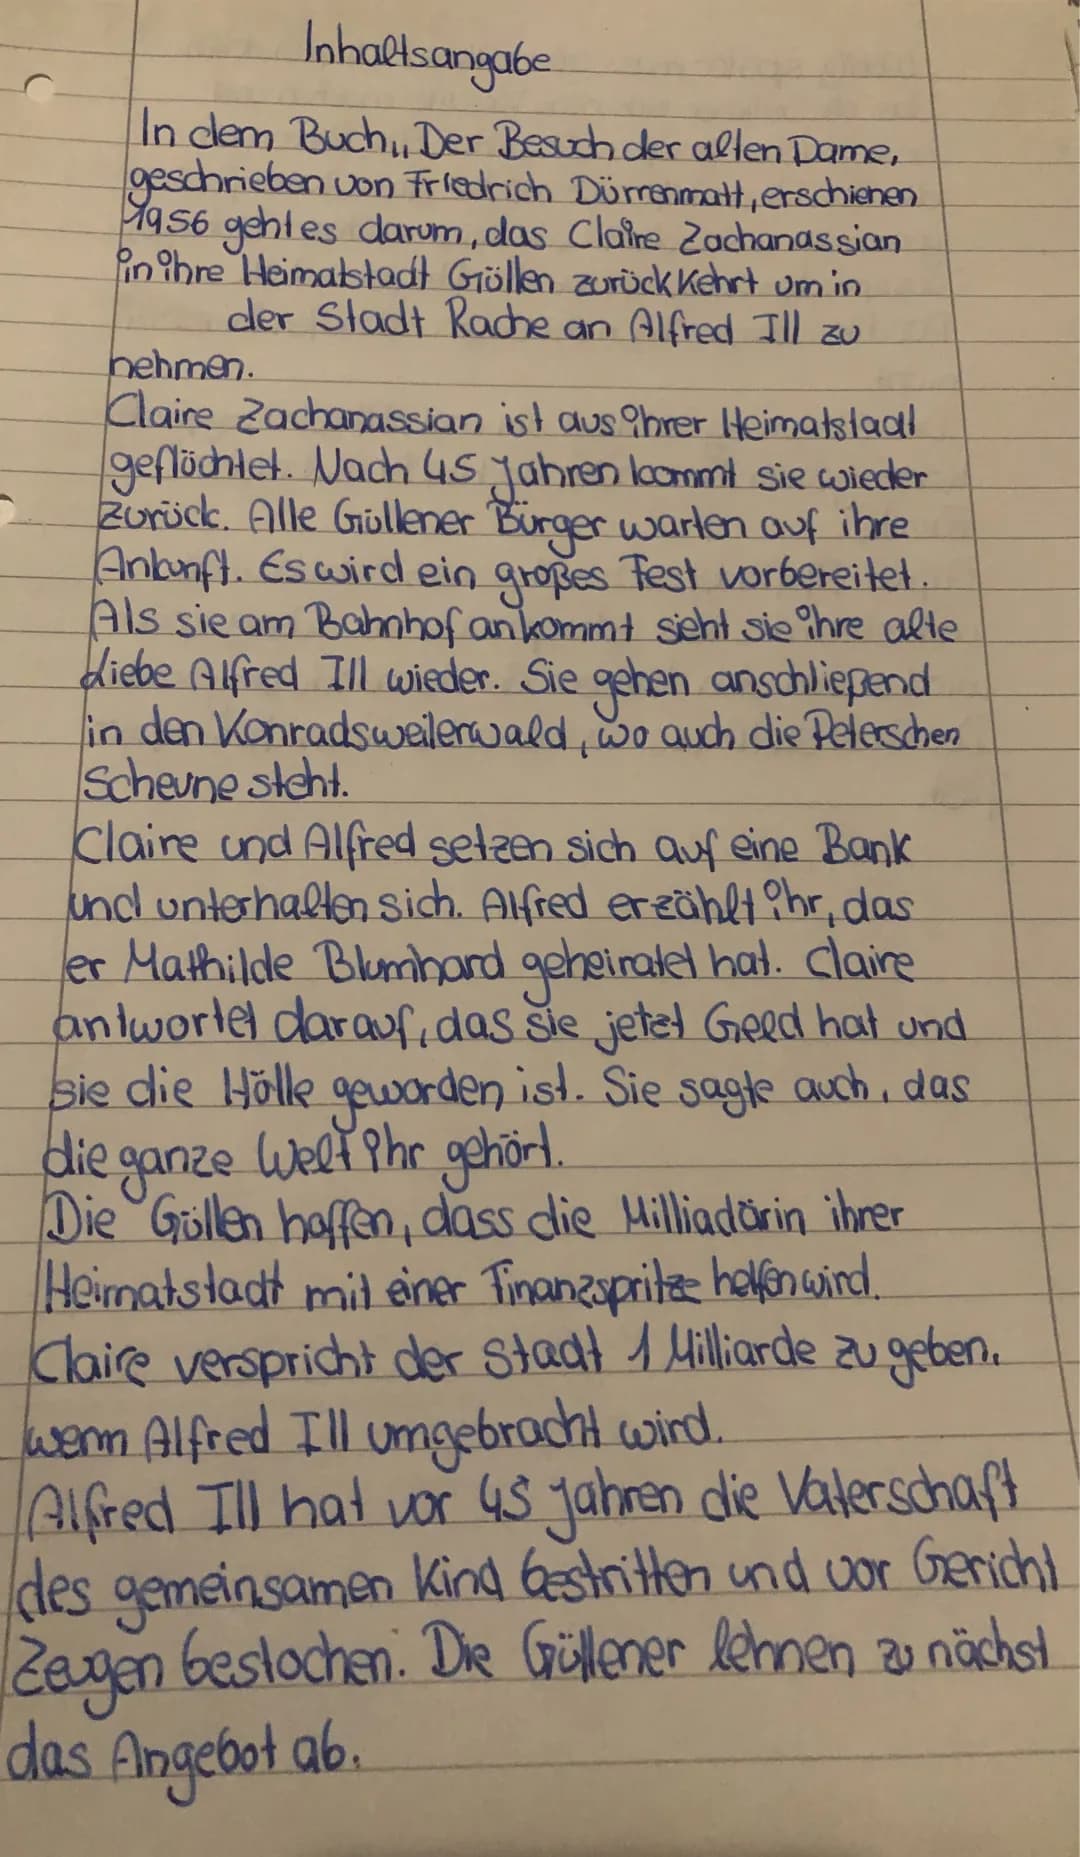 Inhaltsangabe
In dem Buch,, Der Besuch der alten Dame,
geschrieben von Friedrich Dürrenmatt, erschienen
1956 geht es darum, das Claire Zachanassian
in ihre Heimatstadt Güllen zurück kehrt um in
der Stadt Rache an Alfred Ill zu
nehmen.
Claire Zachanassian ist aus ihrer Heimatstadt
geflüchtet. Nach 45 Jahren kommt sie wieder
zurück. Alle Güllener Bürger warten auf ihre
Ankunft. Es wird ein großes Fest vorbereitet.
Als sie am Bahnhof ankommt sieht sie ihre alte
Liebe Alfred Ill wieder. Sie gehen anschließend
in den Konradsweilerwald, wo auch die Peterschen
Scheune steht.
Claire und Alfred setzen sich auf eine Bank
und unterhalten sich. Alfred erzählt ihr, das
er Mathilde Blumhard geheiratet hat. Claire
antwortet darauf, das sie jetzt Geld hat und
sie die Hölle geworden ist. Sie sagte auch, das
die ganze Welt ihr gehört.
Die Güllen hoffen, dass die Milliadärin ihrer
Heimatstadt mit einer Finanzspritze helfen wird.
Claire verspricht der Stadt 1 Milliarde zu geben,
wenn Alfred Ill umgebracht wird.
Alfred Ill hat vor 45 Jahren die Vaterschaft
des gemeinsamen Kind bestritten und vor Gericht
Zeugen bestochen. Die Güllener lehnen zu nächst
das Angebot ab.